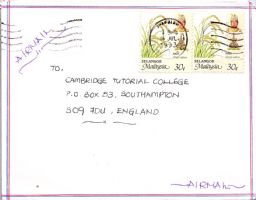 AIRMAIL
SELANGOR
Malaysia 30¢
SELANGOR
Malaysia 30¢
TO,
CAMBRIDGE TUTORIAL COLLEGE
P.O. BOX 53, SOUTHAMPTON
SO9 7DU, ENGLAND
AIRMAIL